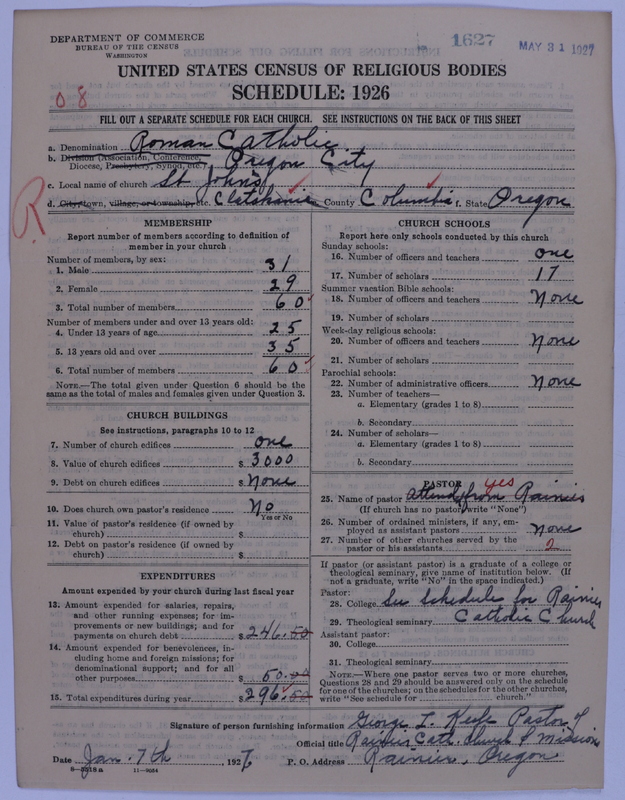 DEPARTMENT OF COMMERCE
BUREAU OF THE CENSUS
WASHINGTON
1627
MAY 31 1927
UNITED STATES CENSUS OF RELIGIOUS BODIES
SCHEDULE: 1926
08
FILL OUT A SEPARATE SCHEDULE FOR EACH CHURCH. SEE INSTRUCTIONS ON THE BACK OF THIS SHEET
a. Denomination Roman Catholic
b. Division (Association, Conference, Diocese, Presbytery, Synod, etc.) Oregon City
c. Local name of church St John's
d. City, town, village, or township, etc. Clatskanie e. County Columbia f. State Oregon
R
MEMBERSHIP
Report number of members according to definition of
member in your church
Number of members, by sex:
1. Male 31
2. Female 29
3. Total number of members 60
Number of members under and over 13 years old:
4. Under 13 years of age 25
5. 13 years old and over 35
6. Total number of members 60
NOTE.—The total given under Question 6 should be the
same as the total of males and females given under Question 3.
CHURCH BUILDINGS
See instructions, paragraphs 10 to 12
7. Number of church edifices one
8. Value of church edifices $ 3000
9. Debt on church edifices $ None
10. Does church own pastor's residence No
Yes or No
11. Value of pastor's residence (if owned by
church) $
12. Debt on pastor's residence (if owned by
church) $
EXPENDITURES
Amount expended by your church during last fiscal year
13. Amount expended for salaries, repairs,
and other running expenses; for im-
provements or new buildings; and for
payments on church debt $ 246.50
14. Amount expended for benevolences, in-
cluding home and foreign missions; for
denominational support; and for all
other purposes 50.00
15. Total expenditures during year $ 296.50
CHURCH SCHOOLS
Report here only schools conducted by this church
Sunday schools:
16. Number of officers and teachers one
17. Number of scholars 17
Summer vacation Bible schools:
18. Number of officers and teachers None
19. Number of scholars
Week-day religious schools:
20. Number of officers and teachers None
21. Number of scholars
Parochial schools:
22. Number of administrative officers None
23. Number of teachers—
a. Elementary (grades 1 to 8)
b. Secondary
24. Number of scholars—
a. Elementary (grades 1 to 8)
b. Secondary
PASTOR yes
25. Name of pastor attend from Rainier
(If church has no pastor, write "None")
26. Number of ordained ministers, if any, em-
ployed as assistant pastors None
27. Number of other churches served by the
pastor or his assistants 2
If pastor (or assistant pastor) is a graduate of a college or
theological seminary, give name of institution below. (If
not a graduate, write "No" in the space indicated.)
Pastor:
28. College See schedule for Rainier
29. Theological seminary Catholic Church
Assistant pastor:
30. College
31. Theological seminary
NOTE.—Where one pastor serves two or more churches,
Questions 28 and 29 should be answered only on the schedule
for one of the churches; on the schedules for the other churches,
write "See schedule for church."
Signature of person furnishing information George I. Keefe Pastor of
Official title Rainier Cath. Church & Missions
Date Jan. 7th 1927 P. O. Address Rainier, Oregon
8—5218a 11—9034